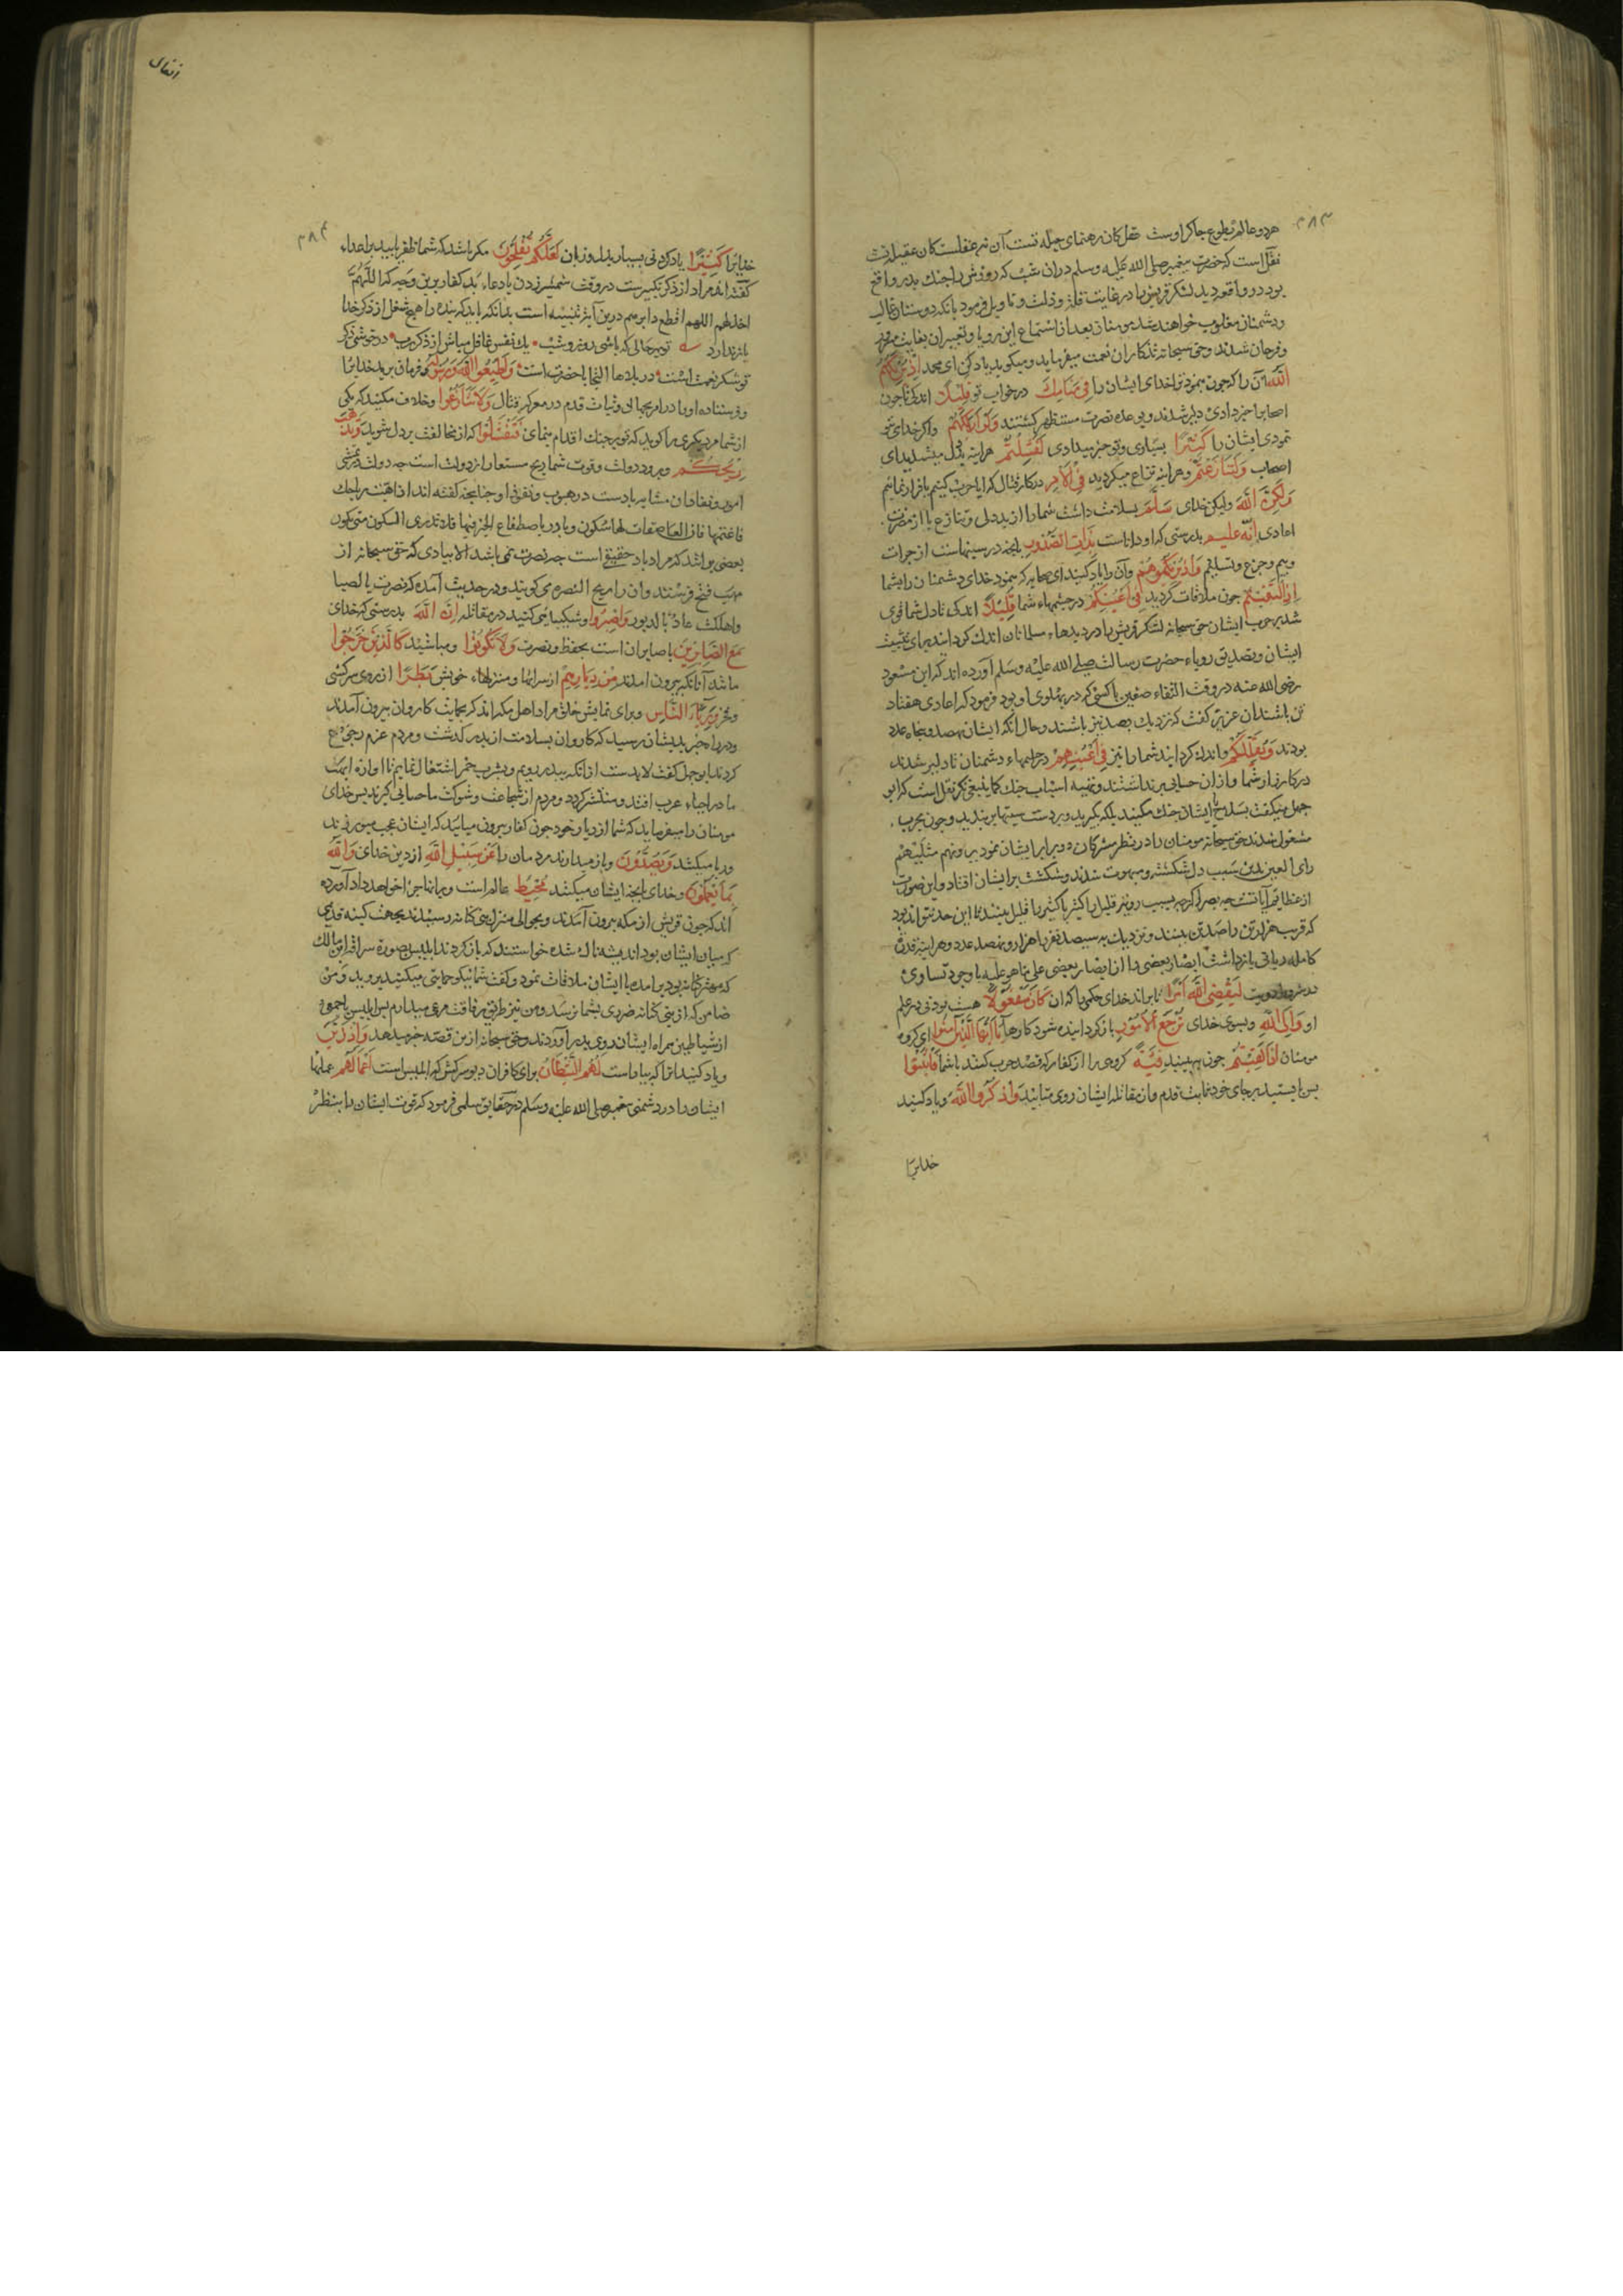 ۳۸۳
هر دو عالم بطوع چاکر اوست
نقل است که حضرت پیغمبر صلی الله علیه وسلم دران شب که روزش را جنك بدر واقع
بود در واقعه دید لشکر قریش را در غایت قلت وذلت و تاویل فرمود بانکه دوستان غالب
ودشمنان مغلوب خواهند شد مومنان بعد از استماع این رویا وتعبیر ان بغایت
وفرحان شدند وحق سبحانه تذکار ان نعمت میفرماید ومیکوید یاد کن ای محمد اذ یریکهم
الله ان را که چون بنمود ترا خدای ایشان را فی منامك در خواب تو قلیلا اندکی تا چون
اصحابرا خبر دادی دلیر شدند وبوعده نصرت مستظهر کشتند ولو اراکهم واکر خدای بتو
نمودی ایشان را کثیرا بسیاری وتو خبر میدادی لفشلتم هراینه بددل میشدیدای
اصحاب ولتنازعتم وهراینه تنازع میکردید فی الامر در کار قتال که ایا حرب کنیم یا فرار نمایم
ولکن الله ولیکن خدای سلم بسلامت داشت شما را از بددلی وتنازع یا از مضرت
اعادی انه علیم بدرستی که او داناست بذات الصدور بانچه در سینهاست از جرات
وبیم وجزع وتسلیم واذ یریکموهم وآن را یاد کنید ای صحابه که بنمود خدای دشمنان را بشما
اذ التقیتم چون ملاقات کردید فی اعینکم در چشمهاء شما قلیلا اندکی تا دل شما قوی
شد بر حرب ایشان حق سبحانه لشکر قریش را در دیدهاء مسلمانان اندك کردانید برای تثبیت
ایشان وتصدیق رویاء حضرت رسالت صلی الله علیه وسلم آورده اند که ابن مسعود
رضی الله عنه در وقت التقاء صفین با کسی که در پهلوی او بود فرمود که اعادی هفتاد
تن باشند ان عزیز کفت که نزدیك بصد تن باشند وحال آنکه ایشان نهصد وپنجاه عدد
بودند ویقللکم واندك کردانید شما را نیز فی اعینهم در چشمهاء دشمنان تا دلیر شدند
در کارزار شما وازان حسابی برنداشتند وتهیه اسباب جنك کما ینبغی نکردند نقل است که ابو
جهل میکفت بسلاح ایشان جنك مکنید بلکه بکیرید وبر دست سیتها بربندید وچون بحرب
مشغول شدند حق سبحانه مومنان را در نظر مشرکان دو برابر ایشان نمود یرونهم مثلیهم
رای العین بدین سبب دل شکسته ومبهوت شدند وشکست بر ایشان افتاد واین صورت
از عظایم آیاتست چه بصر اکرچه بسبب رویت قلیل را کثیر یا کثیر را قلیل بیند اما این حد نتواند بود
که قریب هزار تن را صد تن ببیند ونزدیك به سیصد نفر را هزار ونهصد عدد وهراینه قدرت
کامله ربانی بازداشت ابصار بعضی را از ابصار بعضی علی ما هو علیه با وجود تساوی
در شروط رویت لیقضی الله امرا تا براند خدای حکمی را که ان کان مفعولا هست بودنی در علم
او والی الله وبسوی خدای ترجع الامور بازکردانیده شود کارها یا ایها الذین آمنوا ای کروه
مومنان اذا لقیتم چون ببینید فیئة کروهی را از کفار که قصد حرب کنند با شما فاثبتوا
پس بایستید بر جای خود ثابت قدم واز مقاتله ایشان روی متابید واذکروا الله ویاد کنید
خدایرا
انفال
۳۸۴
خدایرا کثیرا یاد کردنی بسیار بدل وزبان لعلکم تفلحون مکر باشد که شما ظفر یابید بر اعداء
کفته اند مراد از ذکر تکبیرست در وقت شمشیر زدن یا دعاء بد کفار برین وجه که اللهم
اخذلهم اللهم اقطع دابرهم درین آیه تنبیه است بدانکه باید که بنده را هیچ شغل از ذکر خدا
باز ندارد تو بهر حالی که باشی روز وشب یك نفس غافل مباش از ذکر رب در خوشی ذکر
تو شکر نعمت است در بلاها التجا با حضرت است واطیعوا الله ورسوله وفرمان برید خدایرا
وفرستاده او را در امر بجهاد وثبات قدم در معرکه قتال ولا تنازعوا وخلاف مکنید که یکی
از شما مر دیکری را کوید که تو بر جنك اقدام منمای فتفشلوا که از مخالفت بددل شوید وتذهب
ریحکم وبرود دولت وقوت شما ریح مستعار از دولت است چه دولت در تمشی
امور ونفاذ ان مشابه بادست در هبوب ونفوذ او چنانچه کفته اند اذا هبت ریاحك
فاغتنمها فان لعاصفات لها سکون وبادر باصطناع الخیر فیها فلا تدری السکون متی یکون
بعضی بر انند که مراد باد حقیقی است چه نصرت نمی باشد الا ببادی که حق سبحانه از
مهب فتح فرستد وان را ریح النصره می کویند ودر حدیث آمده که نصرت بالصبا
واهلکت عاد بالدبور واصبروا وشکیبایی کنید در مقاتله ان الله بدرستی که خدای
مع الصابرین با صابران است بحفظ ونصرت ولا تکونوا ومباشید کالذین خرجوا
مانند آنانکه بیرون امدند من دیارهم از سراها ومنزلهاء خویش بطرا از روی سرکشی
وفخر ورئاء الناس وبرای نمایش خلق مراد اهل مکه اند که بحمایت کاروان بیرون آمدند
ودر راه خبر بدیشان رسید که کاروان بسلامت از بدر کذشت ومردم عزم رجوع
کردند ابوجهل کفت لابدست از انکه ببدر رویم وبشرب خمر اشتغال نمایم تا اوازه ابهت
ما در احیاء عرب افتد ومنتشر کردد ومردم از شجاعت وشوکت ما حسابی کیرند پس خدای
مومنان را میفرماید که شما از دیار خود چون کفار بیرون میایید که ایشان عجب میورزند
وریا میکنند ویصدون وباز میدارند مردمان را عن سبیل الله از دین خدای والله
بما یعملون وخدای بانچه ایشان میکنند محیط عالم است وبرانها جزا خواهد داد آورده
اند که چون قریش از مکه بیرون آمدند وبحوالی منزل بنی کنانه رسیدند بجهت کینه قدیمی
که میان ایشان بود اندیشه ناك شده خواستند که بازکردند ابلیس بصورة سراقه ابن مالك
که مهتر کنانه بود بر امده با ایشان ملاقات نمود وکفت شما نیکو حمایتی میکنید بروید ومن
ضامن که از بنی کنانه ضرری بشما نرسد ومن نیز طریق مرافقت مرعی میدارم پس ابلیس با جمعی
از شیاطین همراه ایشان روی ببدر آوردند وحق سبحانه ازین قصه خبر میدهد واذ زین
ویاد کنید انرا که بیاراست لهم الشیطان برای کافران دیو سرکش که ابلیس است اعمالهم عملها
ایشان را در دشمنی پیغمبر صلی الله علیه وسلم در حقایق سلمی فرمود که قوت ایشان را بنظر